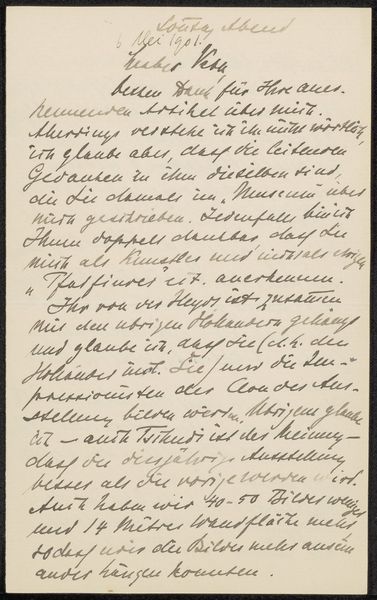 Sonntag Abend
6 Mei 1901.
Lieber Veth,
besten Dank für Ihre aner-
kennenden Artikel über mich.
Allerdings verstehe ich ihn nicht wörtlich,
ich glaube aber, dass die leitenden
Gedanken in ihm dieselben sind,
die Sie damals im „Museum" über
mich geschrieben. Jedenfalls bin ich
Ihnen doppelt dankbar, dass Sie
mich als Künstler und nicht als ewigen
„Pfadfinder" etc. anerkennen.
Ihr von der Heydt ist zusammen
mit den übrigen Holländern gehängt
und glaube ich, dass Sie (d.h. die
Holländer incl. Sie) und die Im-
pressionisten den Clou der Aus-
stellung bilden werden. Übrigens glaube
ich – auch Tschudi ist der Meinung –
dass die diesjährige Ausstellung
besser als die vorige werden wird.
Auch haben wir 40-50 Bilder weniger
und 14 Meter Wandfläche mehr
sodass wir die Bilder mehr ausein
ander hängen konnten.